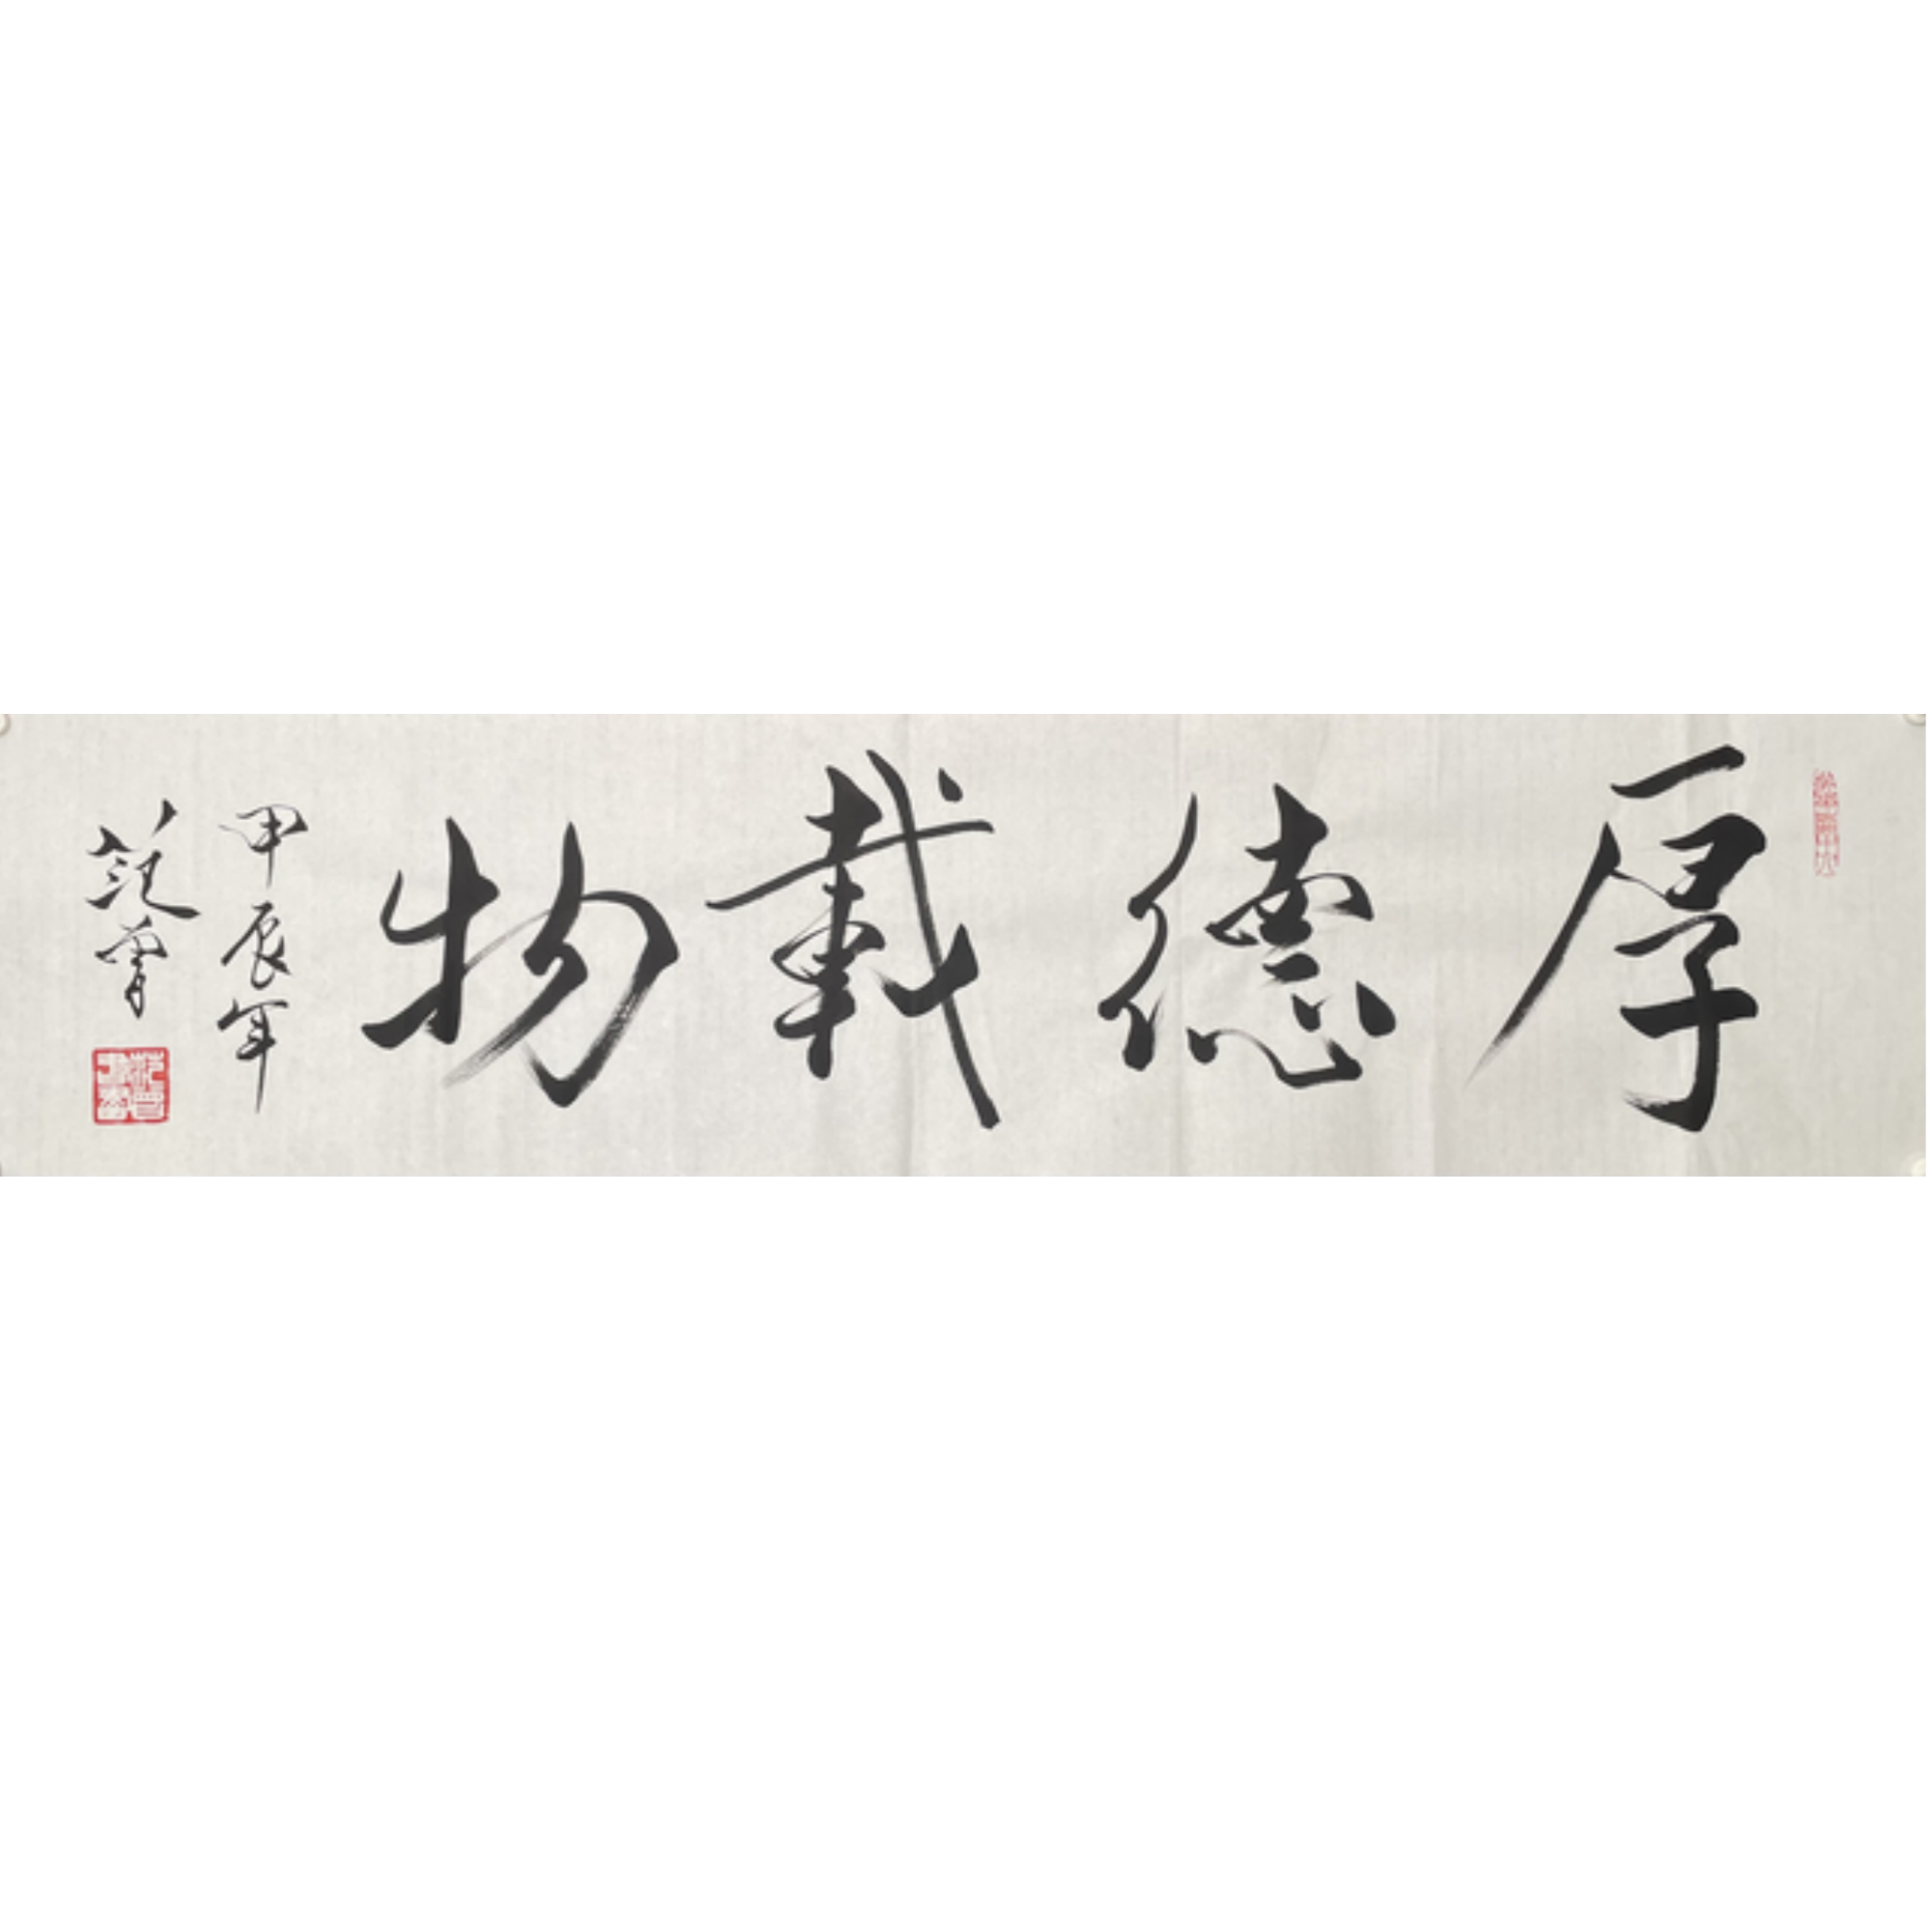 厚德載物
甲辰年
范曾